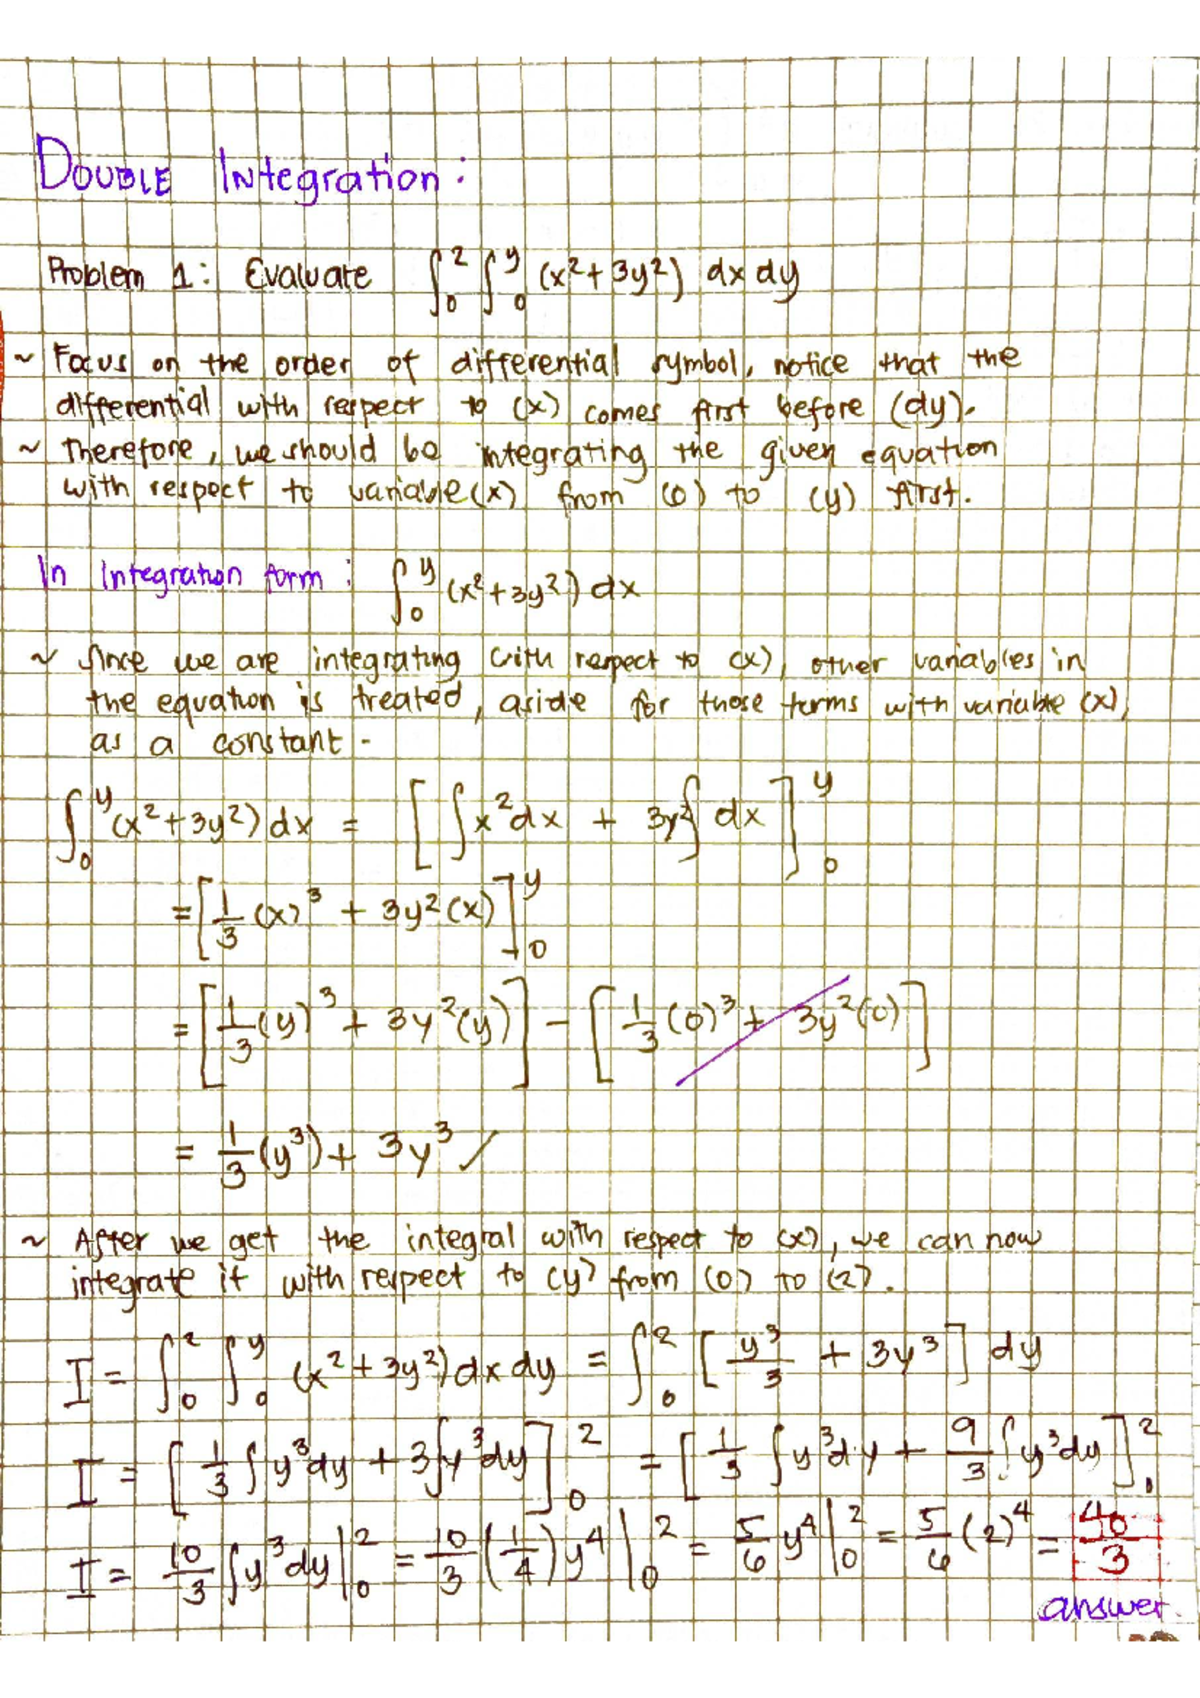 DOUBLE INtegration:
Problem 1: Evaluate ∫₀² ∫₀^y (x² + 3y²) dx dy
~ Focus on the order of differential symbol, notice that the
differential with respect to (x) comes first before (dy).
~ Therefore, we should be integrating the given equation
with respect to variable (x) from (0) to (y) first.
In Integration form: ∫₀^y (x² + 3y²) dx
~ Since we are integrating with respect to (x), other variables in
the equation is treated, aside for those terms with variable (x),
as a constant.
∫₀^y (x² + 3y²) dx = [∫x² dx + 3y² ∫ dx]₀^y
= [1/3 (x)³ + 3y² (x)]₀^y
= [1/3 (y)³ + 3y² (y)] - [1/3 (0)³ + 3y² (0)]
= 1/3 (y³) + 3y³
~ After we get the integral with respect to (x), we can now
integrate it with respect to (y) from (0) to (2).
I = ∫₀² ∫₀^y (x² + 3y²) dx dy = ∫₀² [y³/3 + 3y³] dy
I = [1/3 ∫y³dy + 3∫y³dy]₀² = [1/3 ∫y³dy + 9/3 ∫y³dy]₀²
I = 10/3 ∫y³dy |₀² = 10/3 (1/4) y⁴ |₀² = 5/6 y⁴ |₀² = 5/6 (2)⁴ = 40/3
answer.